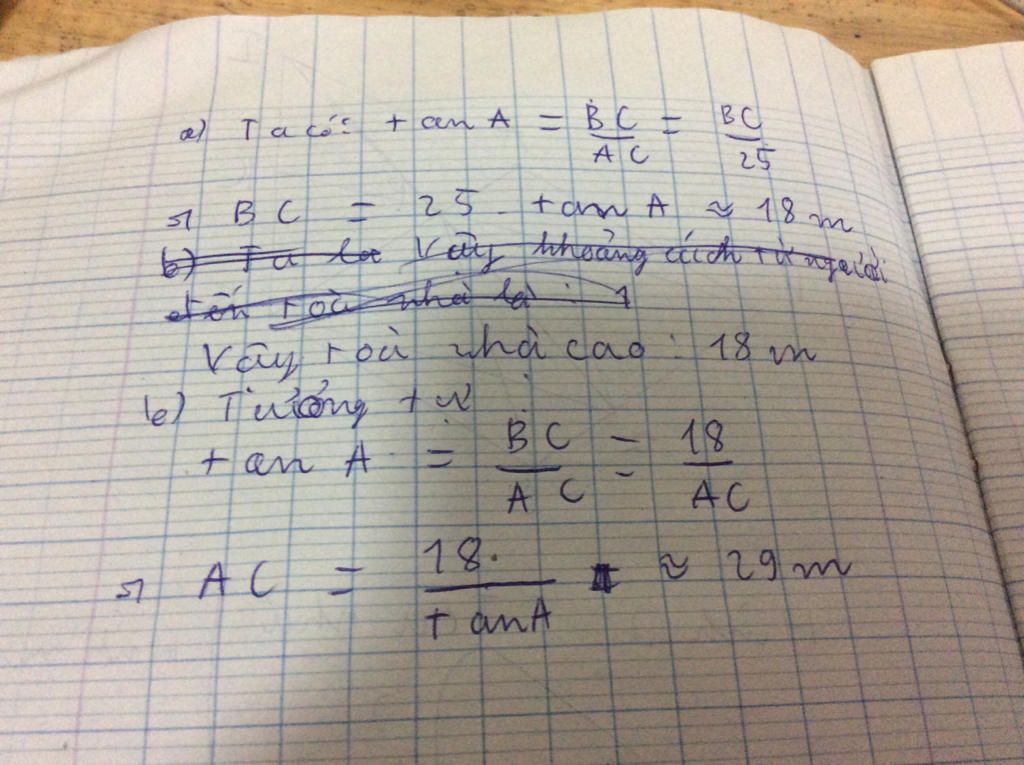 a) Ta có: tan A = BC/AC = BC/25
=> BC = 25 . tan A ≈ 18 m
b) Ta có Vậy khoảng cách từ người
đến toà nhà là : 1
Vậy toà nhà cao : 18 m
b) Tương tự
tan A = BC/AC = 18/AC
=> AC = 18/tanA ≈ 29 m